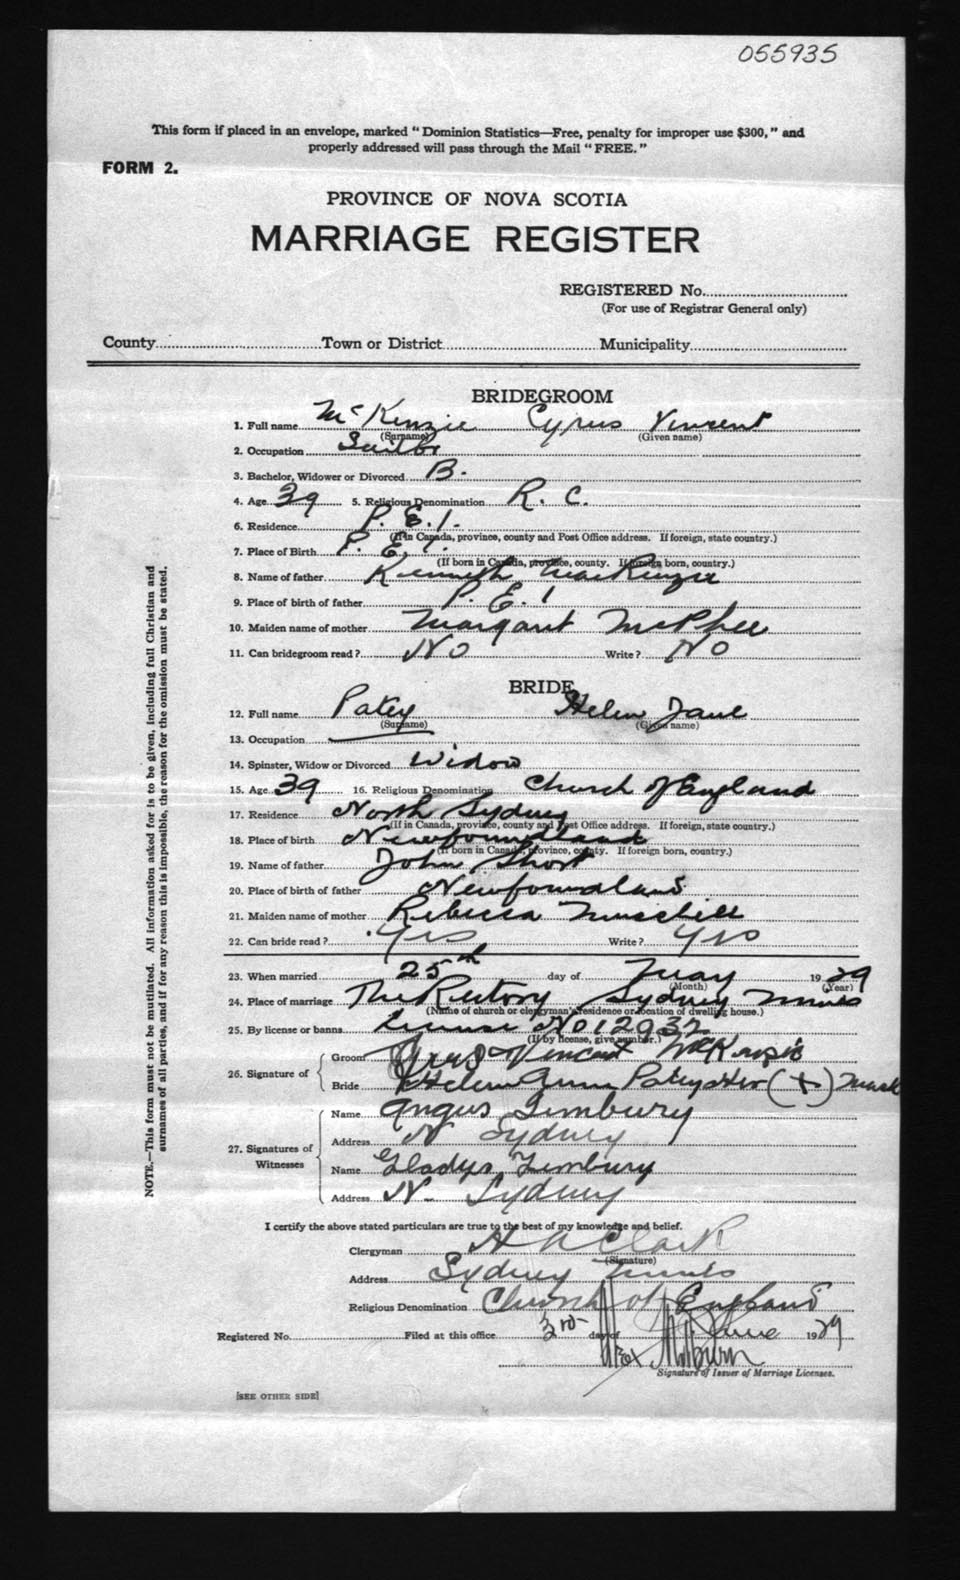 055935
This form if placed in an envelope, marked "Dominion Statistics—Free, penalty for improper use $300," and
properly addressed will pass through the Mail "FREE."
FORM 2.
PROVINCE OF NOVA SCOTIA
MARRIAGE REGISTER
REGISTERED No.
(For use of Registrar General only)
County Town or District Municipality
BRIDEGROOM
1. Full name McKenzie Cyrus Vincent
(Surname) (Given name)
2. Occupation Sailor
3. Bachelor, Widower or Divorced B.
4. Age 39 5. Religious Denomination R. C.
6. Residence P. E. I.
(If in Canada, province, county and Post Office address. If foreign, state country.)
7. Place of Birth P. E. I.
(If born in Canada, province, county. If foreign born, country.)
8. Name of father Kenneth MacKenzie
9. Place of birth of father P. E. I
10. Maiden name of mother Margaret McPhee
11. Can bridegroom read? No Write? No
BRIDE
12. Full name Patey Helen Jane
(Surname) (Given name)
13. Occupation
14. Spinster, Widow or Divorced Widow
15. Age 39 16. Religious Denomination Church of England
17. Residence North Sydney
(If in Canada, province, county and Post Office address. If foreign, state country.)
18. Place of birth Newfoundland
(If born in Canada, province, county. If foreign born, country.)
19. Name of father John Short
20. Place of birth of father Newfoundland
21. Maiden name of mother Rebecca
22. Can bride read? Yes Write? Yes
23. When married 25th day of May 1929
(Month) (Year)
24. Place of marriage The Rectory Sydney Mines
(Name of church or clergyman's residence or location of dwelling house.)
25. By license or banns license No 12932
(If by license, give number.)
26. Signature of
Groom Cyrus Vincent McKenzie
Bride Helen Ann Patey Her (+) Mark
27. Signatures of Witnesses
Name Angus Timbury
Address N Sydney
Name Gladys Timbury
Address N. Sydney
I certify the above stated particulars are true to the best of my knowledge and belief.
Clergyman H A Clark
(Signature)
Address Sydney Mines
Religious Denomination Church of England
Registered No. Filed at this office 3rd day of June 1929
Signature of Issuer of Marriage Licenses.
[SEE OTHER SIDE]
NOTE.—This form must not be mutilated. All information asked for is to be given, including full Christian and
surnames of all parties, and if for any reason this is impossible, the reason for the omission must be stated.